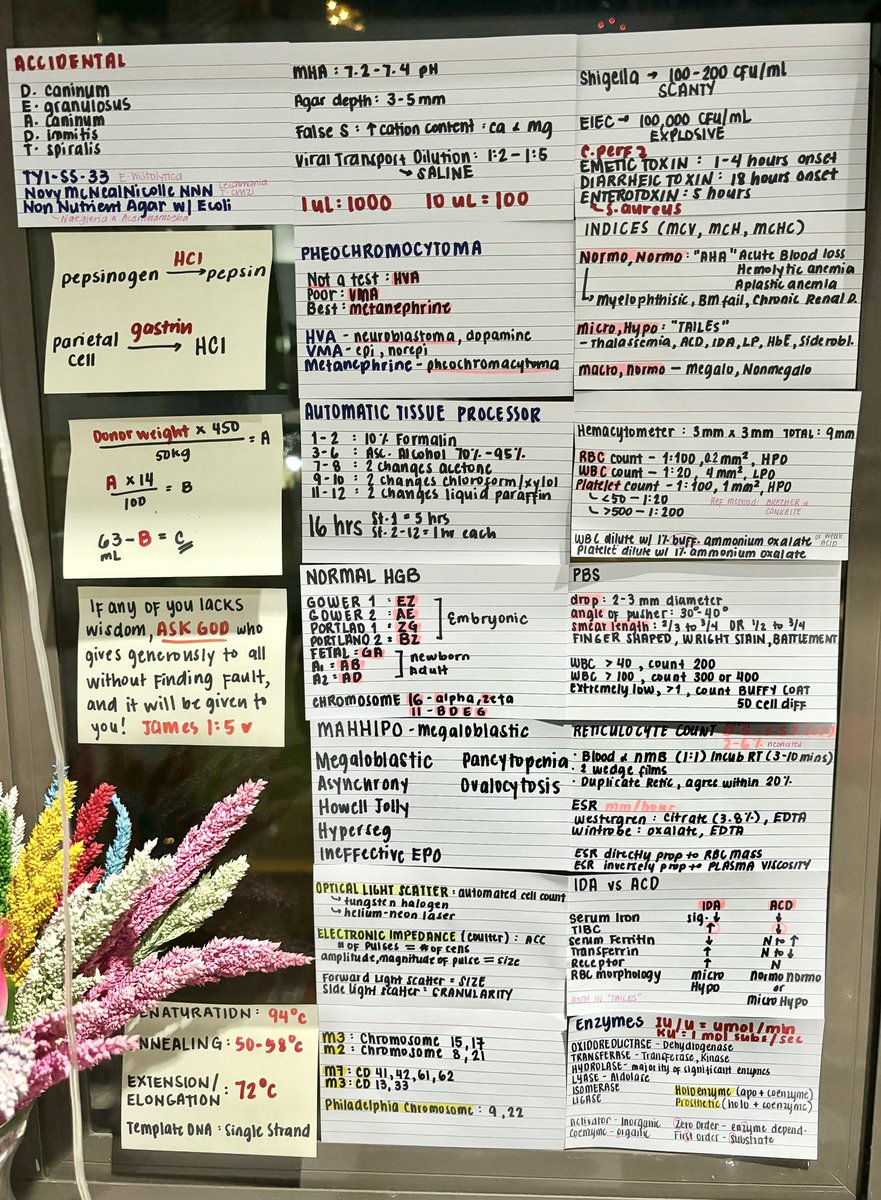 ACCIDENTAL
D. caninum
E. granulosus
A. caninum
D. immitis
T. spiralis
TYI-SS-33 E. histolytica
Novy McNeal Nicolle NNN Leishmania T. cruzi
Non Nutrient Agar w/ E.coli
Naegleria & Acanthamoeba
pepsinogen HCl → pepsin
parietal cell gastrin → HCl
Donor weight x 450
50kg
= A
A x 14
100
= B
63 - B = C
mL
If any of you lacks
wisdom, ASK GOD who
gives generously to all
without finding fault,
and it will be given to
you! James 1:5 ♥
ENATURATION: 94°c
NNEALING: 50-58°c
EXTENSION/
ELONGATION: 72°c
Template DNA: Single Strand
MHA: 7.2-7.4 pH
Agar depth: 3-5mm
False S: ↑cation content: ca & mg
Viral Transport Dilution: 1:2-1:5
↳ SALINE
1 uL = 1000 10 uL = 100
PHEOCHROMOCYTOMA
Not a test: HVA
Poor: VMA
Best: metanephrine
HVA - neuroblastoma, dopamine
VMA - epi, norepi
Metanephrine - pheochromacytoma
AUTOMATIC TISSUE PROCESSOR
1-2 : 10% Formalin
3-6 : Asc. Alcohol 70%-95%
7-8 : 2 changes acetone
9-10 : 2 changes chloroform/xylol
11-12 : 2 changes liquid paraffin
16 hrs St. 1 = 5 hrs
St. 2-12 = 1 hr each
NORMAL HGB
GOWER 1 : EZ
GOWER 2 : AE
PORTLAD 1 : ZG
PORTLAND 2 : BZ
Embryonic
FETAL = GA
A1 = AB
A2 = AD
newborn
Adult
CHROMOSOME 16 - alpha, zeta
11 - B D E G
MAHHIPO - megaloblastic
Megaloblastic Pancytopenia
Asynchrony Ovalocytosis
Howell Jolly
Hyperseg
Ineffective EPO
OPTICAL LIGHT SCATTER: automated cell count
↳ tungsten halogen
↳ helium-neon laser
ELECTRONIC IMPEDANCE (coulter): ACC
# of Pulses = # of cells
amplitude, magnitude of pulse = size
Forward Light scatter = SIZE
Side light scatter = GRANULARITY
m3: Chromosome 15,17
m2: Chromosome 8,21
m7: CD 41,42,61,62
m3: CD 13,33
Philadelphia Chromosome: 9,22
Shigella → 100-200 CFU/ml
SCANTY
EIEC → 100,000 CFU/mL
EXPLOSIVE
C. perf 2
EMETIC TOXIN: 1-4 hours onset
DIARRHEIC TOXIN: 18 hours onset
ENTEROTOXIN: 5 hours
↳ S. aureus
INDICES (MCV, MCH, MCHC)
Normo, Normo: "AHA" Acute Blood loss
Hemolytic anemia
Aplastic anemia
↳ Myelophthisic, BM fail, Chronic Renal D.
micro, Hypo: "TAILES"
- Thalassemia, ACD, IDA, LP, HbE, Siderobl.
macro, normo - Megalo, Nonmegalo
Hemacytometer : 3mm x 3mm TOTAL: 9mm
RBC count - 1:100, 0.2 mm², HPO
WBC count - 1:20, 4 mm², LPO
Platelet count - 1:100, 1 mm², HPO
↳ <50 - 1:20
↳ >500 - 1:200
Ref method: BRECHER &
CONKRITE
WBC dilute w/ 1% buff. ammonium oxalate or WEAK ACID
Platelet dilute w/ 1% ammonium oxalate
PBS
drop: 2-3 mm diameter
angle of pusher: 30°-40°
smear length: 2/3 to 3/4 OR 1/2 to 3/4
FINGER SHAPED, WRIGHT STAIN, BATTLEMENT
WBC > 40, count 200
WBC > 100, count 300 or 400
extremely low, >1, count BUFFY COAT
50 cell diff
RETICULOCYTE COUNT
2-6% neonates
· Blood & nMB (1:1) incub RT (3-10 mins)
· 2 wedge films
· Duplicate Retic, agree within 20%
ESR mm/hour
Westergren: Citrate (3.8%), EDTA
Wintrobe: oxalate, EDTA
ESR directly prop to RBC MASS
ESR inversely prop to PLASMA VISCOSITY
IDA vs ACD
IDA ACD
Serum Iron sig. ↓ ↓
TIBC ↑ ↓
Serum Ferritin ↓ N to ↑
Transferrin ↑ N to ↓
Receptor ↑ N
RBC morphology micro Hypo Normo Normo or micro Hypo
BOTH IN "TAILES"
Enzymes IU/U = umol/min
KU = 1 mol subs/sec
OXIDOREDUCTASE - Dehydrogenase
TRANSFERASE - Transferase, Kinase
HYDROLASE - majority of significant enzymes
LYASE - Aldolase
ISOMERASE
LIGASE
Holoenzyme (apo + coenzyme)
Prosthetic (holo + coenzyme)
Activator - Inorganic
Coenzyme - organic
Zero Order - enzyme depend.
First order - Substrate